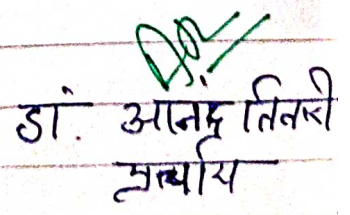 डां. आनंद तिवारी
प्राचार्य